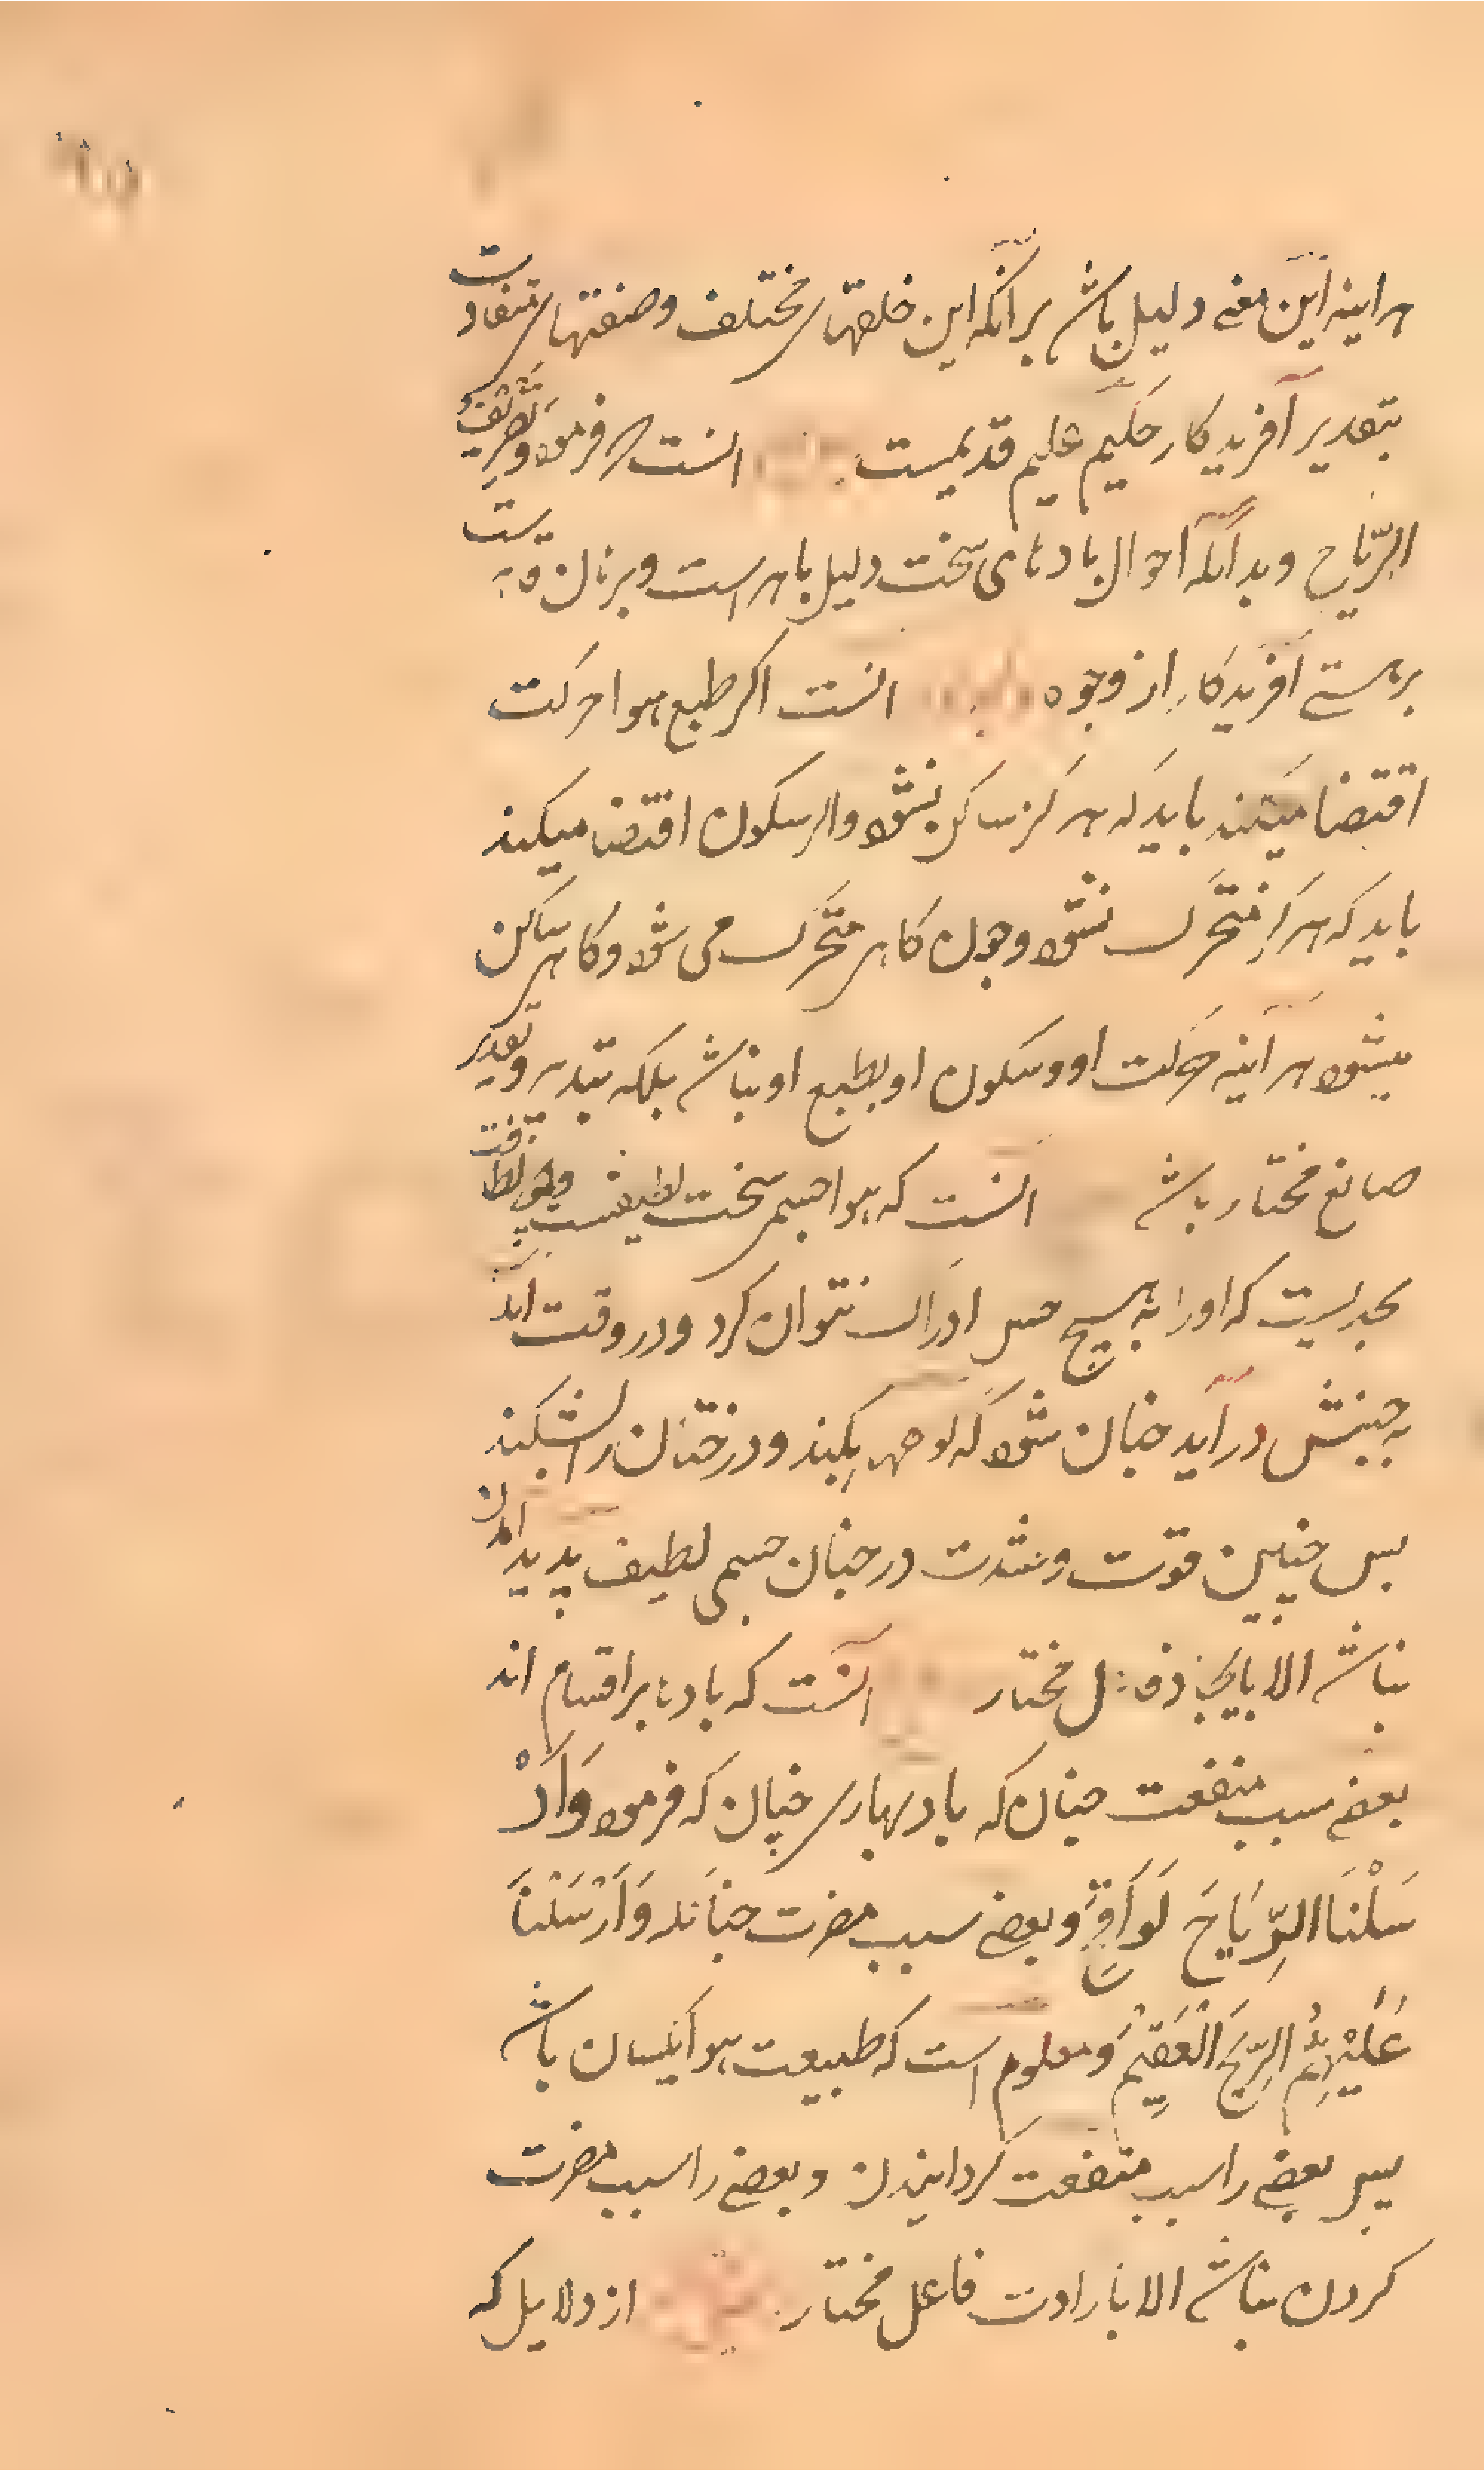 هر اینه این معنے دلیل باشد بر انکه این خلقتهای مختلف وصفتهای متفاوت
بتقدیر آفریدکار حکیم علیم قدیمست انست که فرمود وَتَصْرِیفِ
الرّیاح وبدانکه احوال بادهای سخت دلیل باهر است وبرهان
برهستے افریدکار از وجوه انست اکر طبع هوا حرکت
اقتضا میکند باید که هرکز ساکن نشود واکر سکون اقتضا میکند
باید که هرکز متحرک نشود وچون کاهی متحرک می شود وکاهی ساکن
میشود هر اینه حرکت او وسکون او بطبع او نباشد بلکه بتدبیر وتقدیر
صانع مختار باشد انست که هوا جسمی سخت لطیفست
بحدیست که اورا به هیچ حس ادراک نتوان کرد ودر وقت انکه
به جنبش درآید چنان شود که کوهها بکند ودرختان را بشکند
بس چنین قوت وشدت در چنان جسمی لطیف پدید امدن
نباشد الا بایجاد فاعل مختار انست که بادها بر اقسام اند
بعضے سبب منفعت چنان که باد بهاری چنان که فرمود وَاَرْ
سَلْنَا الرِّیَاحَ لَوَاقِحَ وبعضے سبب مضرت چنانکه وَاَرْسَلْنَا
عَلَیْهِمُ الرِّیحَ الْعَقِیْمَ ومعلوم است که طبیعت هوا یکسان باشد
پس بعضے را سبب منفعت کردانیدن وبعضے را سبب مضرت
کردن نباشد الا بارادت فاعل مختار از دلایل که